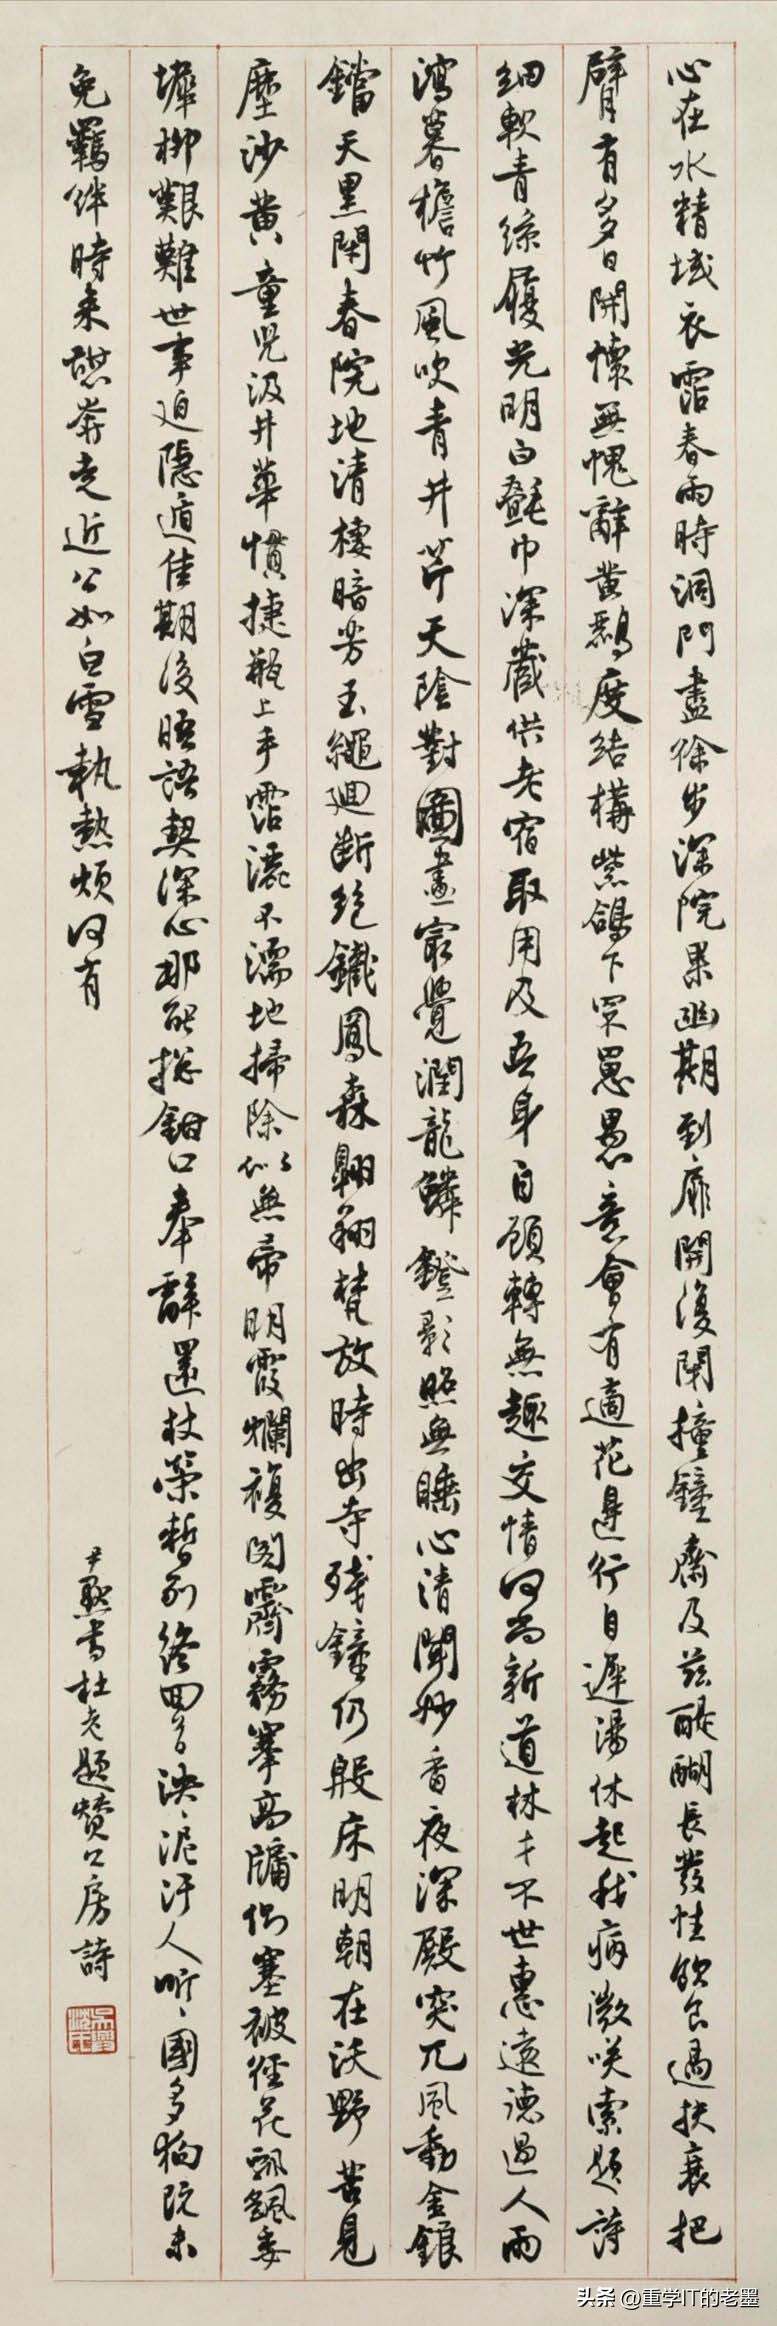 心在水精域衣霑春雨時洞門盡徐步深院果幽期到扉開復閉撞鐘齋及茲醍醐長發性飲食過扶衰把
臂有多日開懷無愧辭黄鸝度結構紫鴿下罘罳愚意會所適花邊行自遲湯休起我病微咲索題詩
細軟青絲履光明白氎巾深藏供老宿取用及吾身自顧轉無趣交情何尚新道林才不世惠遠德過人雨
瀉暮檐竹風吹青井芹天陰對圖畫最覺潤龍鱗鐙影照無睡心清聞妙香夜深殿突兀風動金銀
鐺天黑閉春院地清棲暗芳玉繩迴斷絕鐵鳳森翱翔梵放時出寺殘鐘仍殷床明朝在沃野苦見
塵沙黄童兒汲井華慣捷瓶上手霑灑不濡地掃除似無帚明霞爛複閣霽霧搴高牖側塞被徑花飄颻委
墀柳艱難世事迫隱遁佳期後晤語契深心那能捴鉗口奉辭還杖策暫別終回首泱、泥汙人听、國多狗既未
免羈絆時來憇奔走近公如白雪執熱煩何有
尹默書杜老題贊公房詩
頭条 @重学IT的老墨